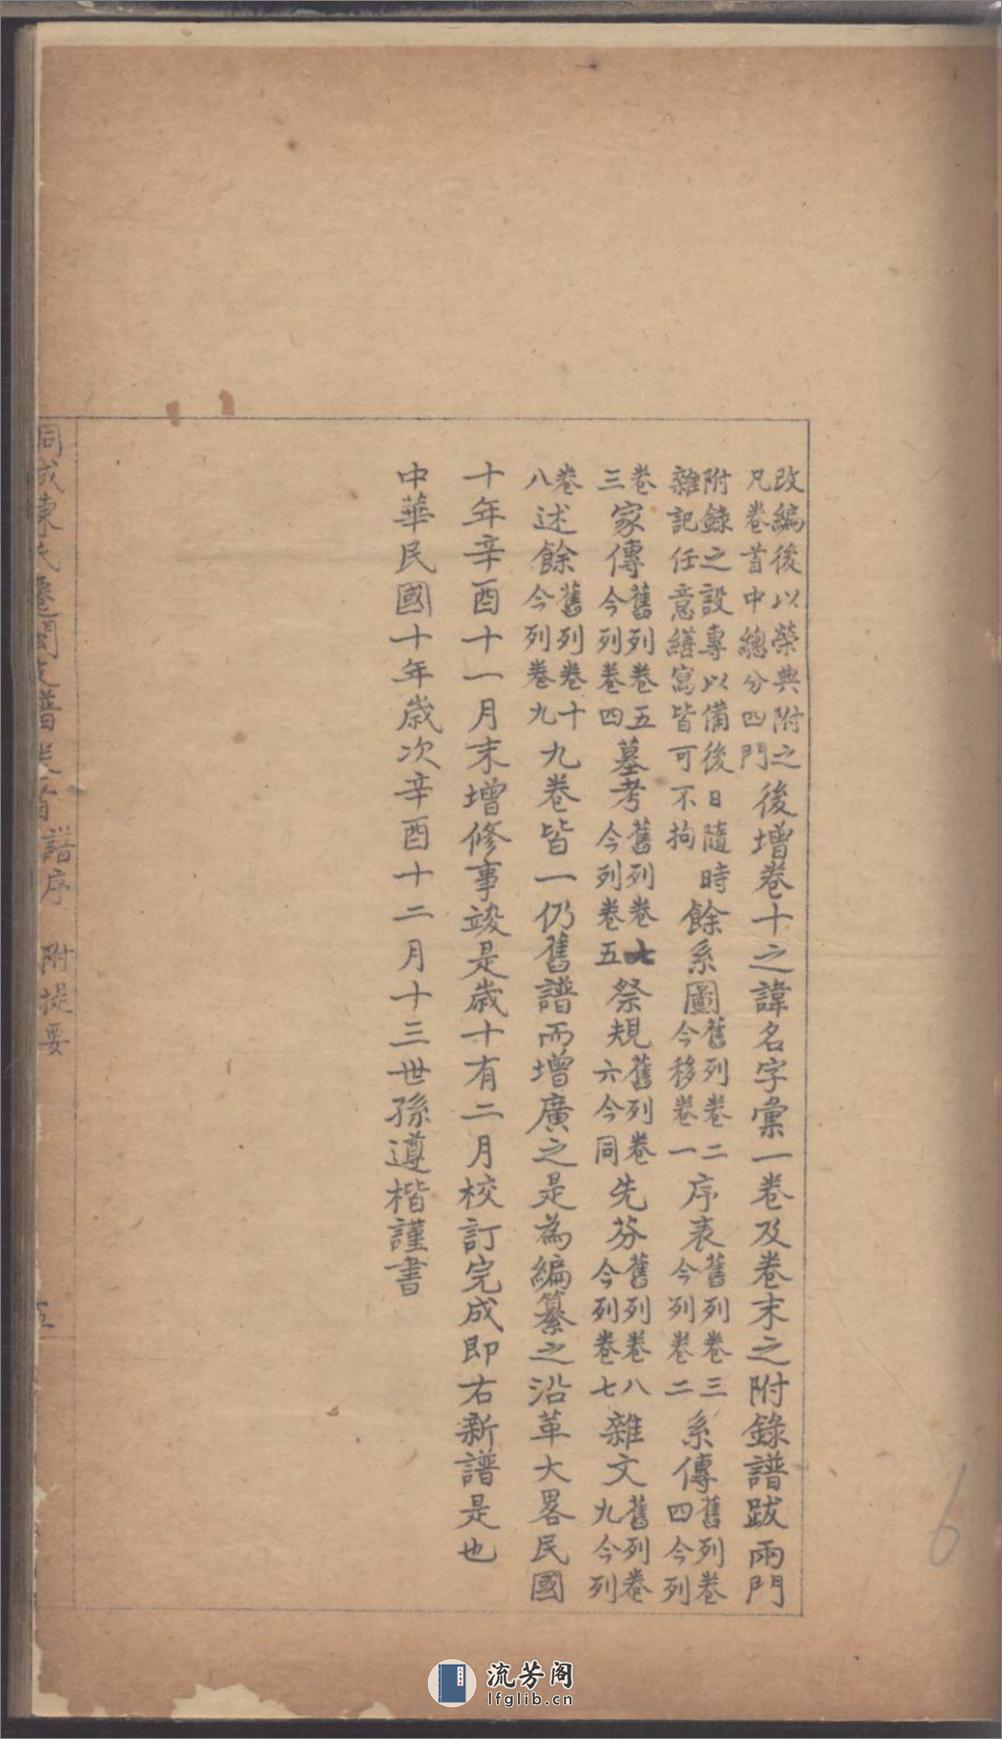 改編後以榮典附之凡卷首中總分四門後增卷十之諱名字彙一卷及卷末之附錄譜跋兩門
附錄之設專以備後日隨時雜記任意繕寫皆可不拘餘系圖舊列卷二今移卷一序表舊列卷三今列卷二系傳舊列卷四今列
卷三家傳舊列卷五今列卷四墓考舊列卷七今列卷五祭規舊列卷六今同先芬舊列卷八今列卷七雜文舊列卷九今列
卷八述餘舊列卷十今列卷九九卷皆一仍舊譜而增廣之是為編纂之沿革大畧民國
十年辛酉十一月末增修事竣是歲十有二月校訂完成即右新譜是也
中華民國十年歲次辛酉十二月十三世孫遵楷謹書
陳氏遷閩支譜卷首 譜序 附提要
6
流芳阁
lfglib.cn